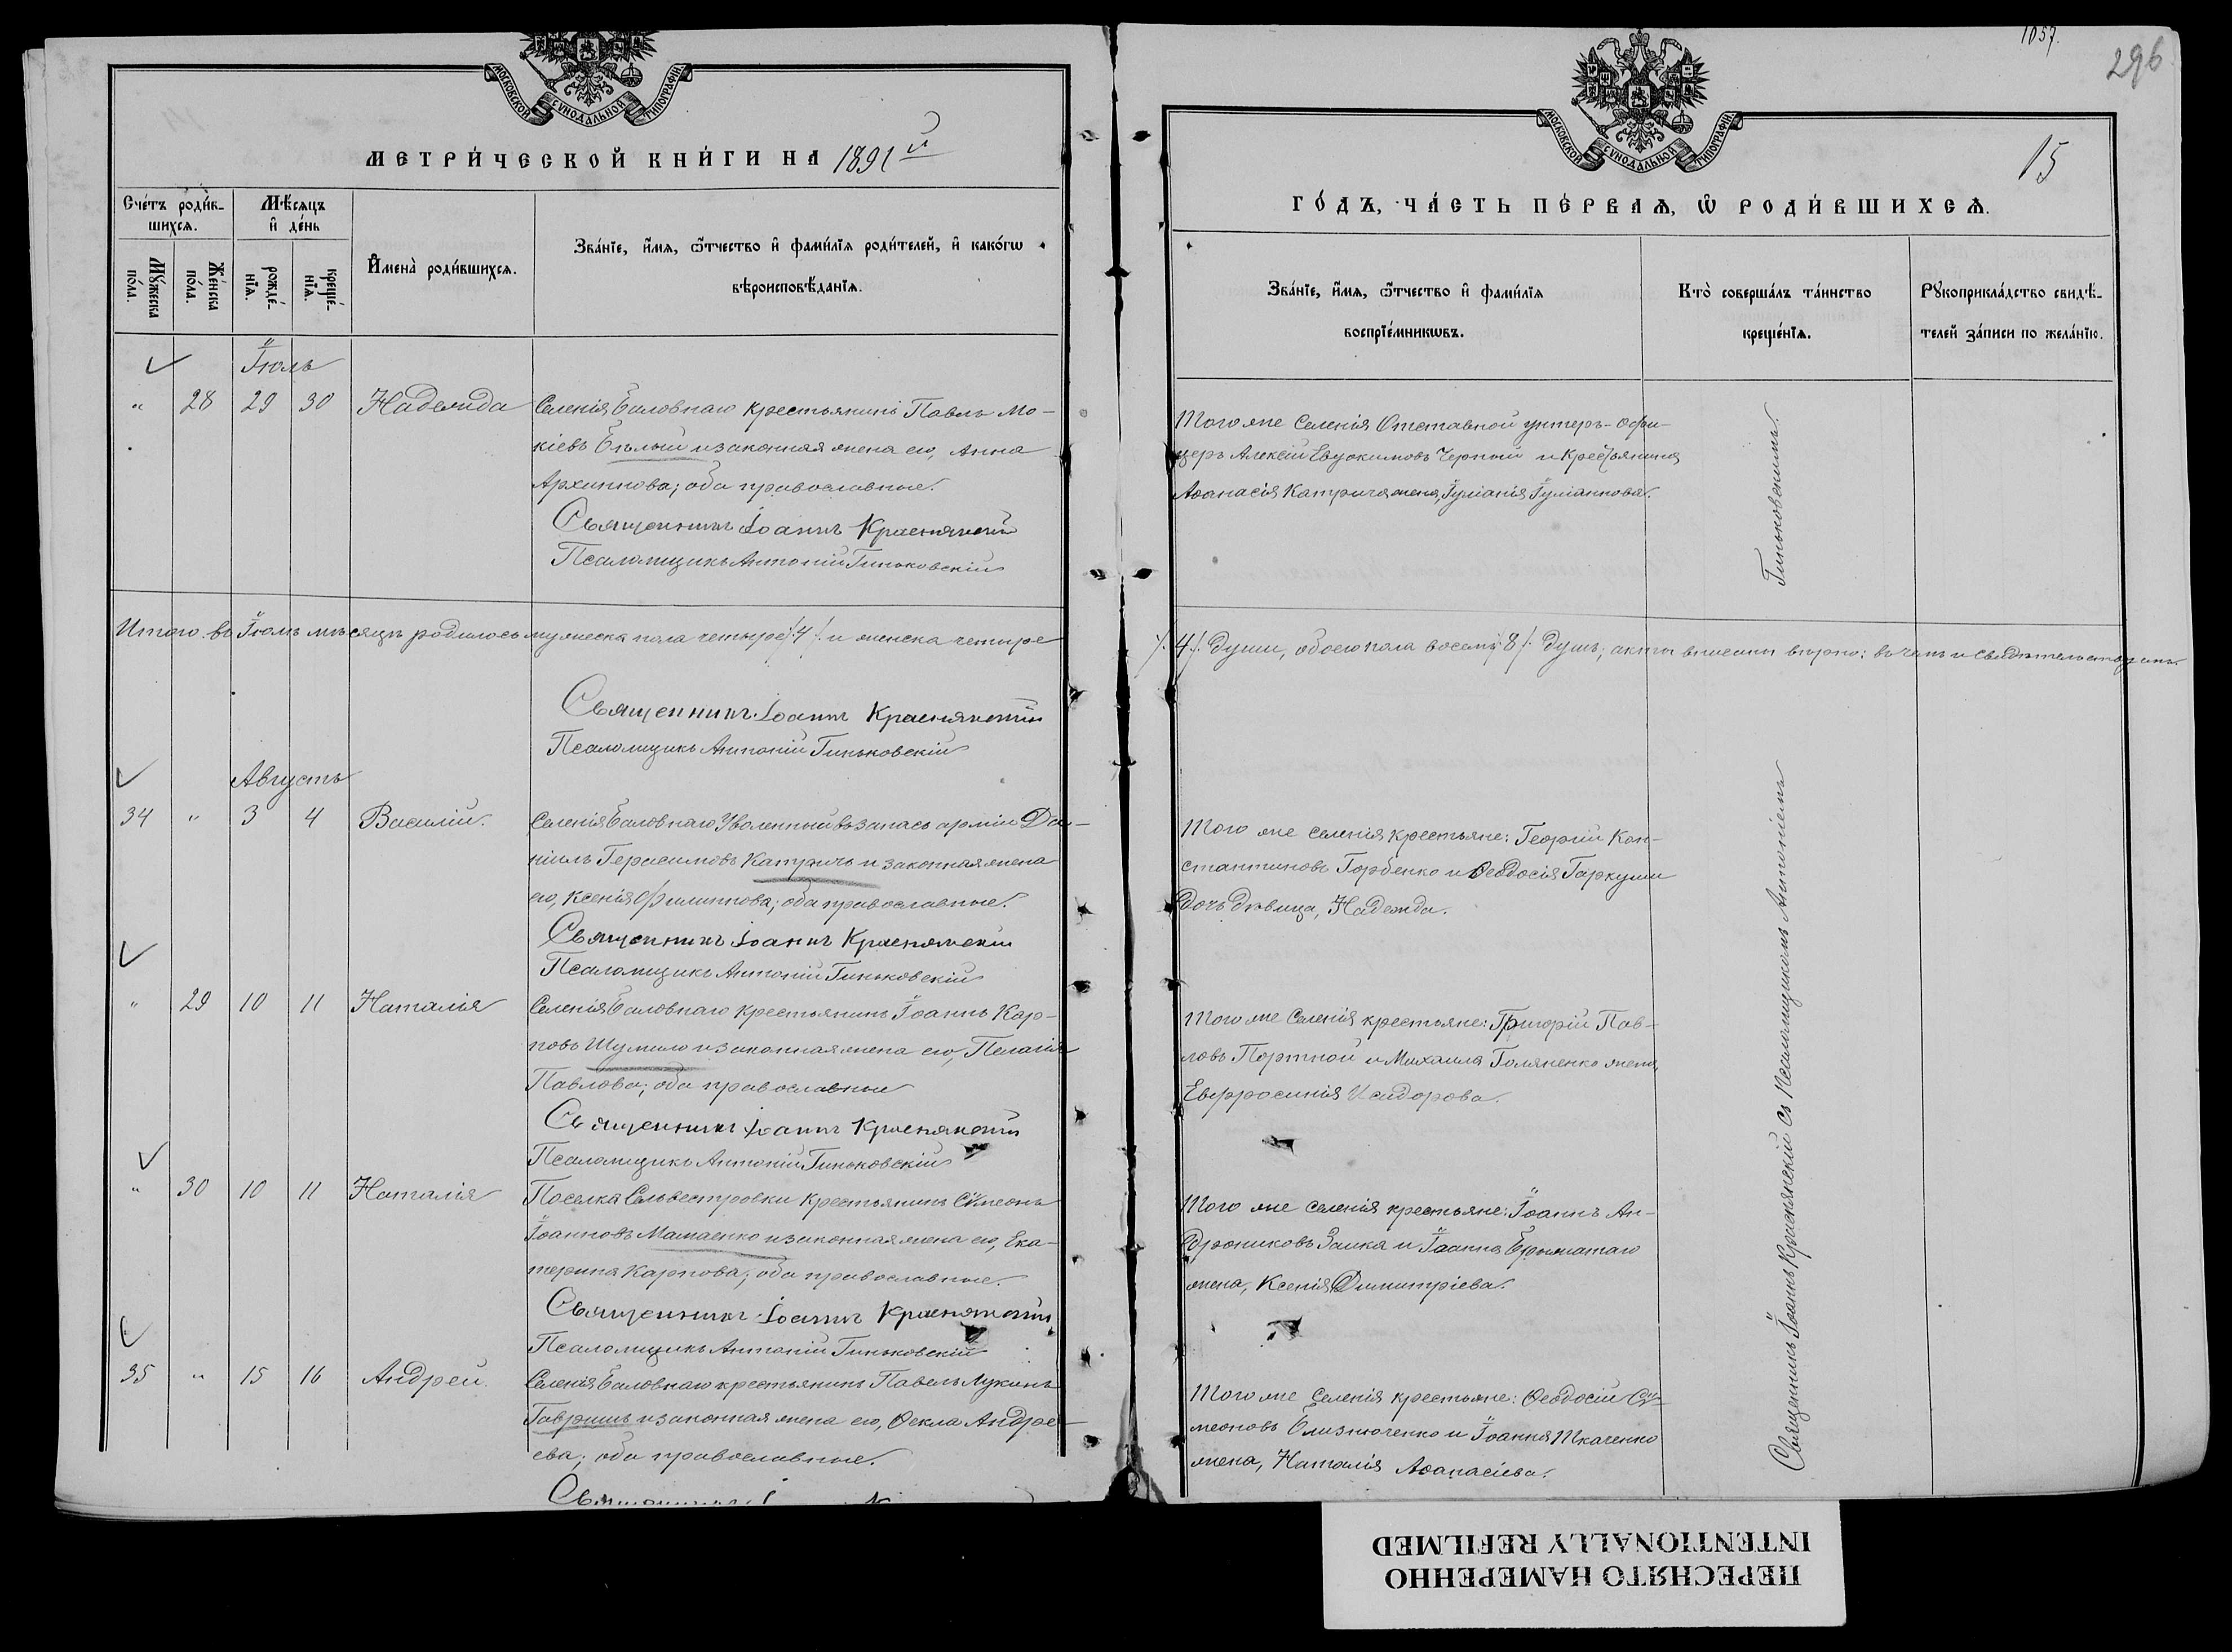 МОСКОВСКОЙ СѴНОДАЛЬНОЙ ТИПОГРАФІИ.
МЕТРИ́ЧЕСКОЙ КНИ́ГИ НА 1891й
Сче́тъ роди́в-
шихсѧ.
Мѣ́сѧцъ
и҆ де́нь
Мꙋ́жеска
по́ла.
Же́нска
по́ла.
рожде́-
нїѧ.
креще́-
нїѧ.
И҆мена̀ роди́вшихсѧ.
Зва́нїе, и҆́мѧ, ѻ҆́тчество и҆ фами́лїѧ роди́телей, и҆ како́гѡ
вѣроисповѣ́данїѧ.
Іюль
" 28 29 30 Надежда Селенія Баловнаго крестьянинъ Павелъ Мо-
кіевъ Бѣлый и законная жена его, Анна
Архиппова; оба православные.
Священникъ Іоаннъ Краснянскій
Псаломщикъ Антоній Гиньковскій
Итого въ Іюлѣ мѣсяцѣ родилось мужеска пола четыре /4/ и женска четыре
Священникъ Іоаннъ Краснянскій
Псаломщикъ Антоній Гиньковскій
Августъ
34 " 3 4 Василій. Селенія Баловнаго Уволенный въ запасъ арміи Да-
ніилъ Герасимовъ Катричъ и законная жена
его, Ксенія Филиппова; оба православные.
Священникъ Іоаннъ Краснянскій
Псаломщикъ Антоній Гиньковскій
" 29 10 11 Наталія Селенія Баловнаго крестьянинъ Іоаннъ Кар-
повъ Шумило и законная жена его, Пелагія
Павлова; оба православные
Священникъ Іоаннъ Краснянскій
Псаломщикъ Антоній Гиньковскій
" 30 10 11 Наталія Поселка Сельвестровки крестьянинъ Сѵмеонъ
Іоанновъ Мамаенко и законная жена его, Ека-
терина Карпова; оба православные.
Священникъ Іоаннъ Краснянскій
Псаломщикъ Антоній Гиньковскій
35 " 15 16 Андрей. Селенія Баловнаго крестьянинъ Павелъ Лукинъ
Гавришъ и законная жена его, Ѳекла Андре-
ева; оба православные.
1057.
296
МОСКОВСКОЙ СѴНОДАЛЬНОЙ ТИПОГРАФІИ.
15
ГО́ДЪ, ЧА́СТЬ ПЕ́РВАѦ, Ѡ҆ РОДИ́ВШИХСѦ.
Зва́нїе, и҆́мѧ, ѻ҆́тчество и҆ фами́лїѧ
воспрїе́мникѡвъ.
Кто̀ соверша́лъ та́инство
креще́нїѧ.
Рꙋкоприкла́дство свидѣ́-
телей за́писи по жела́нїю.
Того же Селенія Отставной унтеръ-офи-
церъ Алексій Евдокимовъ Черный и Крестьянина
Аѳанасія Катрича жена, Іуліанія Іуліанова.
/4/ души, обоего пола восемь /8/ душъ; акты вписаны вѣрно: въ чемъ и свидѣтельствуемъ.
Того же селенія крестьяне: Георгій Кон-
стантиновъ Горбенко и Ѳеодосія Гаркуши
дочь дѣвица, Надежда.
Того же Селенія крестьяне: Григорій Пав-
ловъ Портной и Михаила Голяненко жена,
Евфросинія Исидорова.
Того же селенія крестьяне: Іоаннъ Ан-
дрониковъ Заика и Іоанна жена, Ксенія Димитріева.
Того же Селенія крестьяне: Ѳеодосій Сѵ-
меоновъ Близнюченко и Іоанна Ткаченко
жена, Наталія Аѳанасіева.
Священникъ Іоаннъ Краснянскій съ Псаломщикомъ Антоніемъ
Гиньковскимъ.
ПЕРЕСНЯТО НАМЕРЕННО
INTENTIONALLY REFILMED